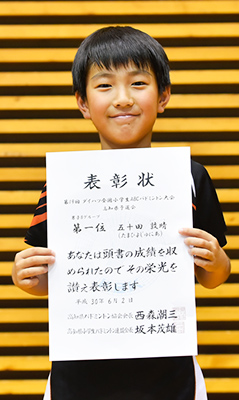 表彰状
第19回 ダイハツ全国小学生ABCバドミントン大会
高知県予選会
第一位 五十田
あなたは頭書の成績を収
められたので その栄光を
讃え表彰します
平成 30年 6月 2日
高知県バドミントン協会会長 西森潮三
高知県小学生バドミントン連盟会長 坂本茂雄